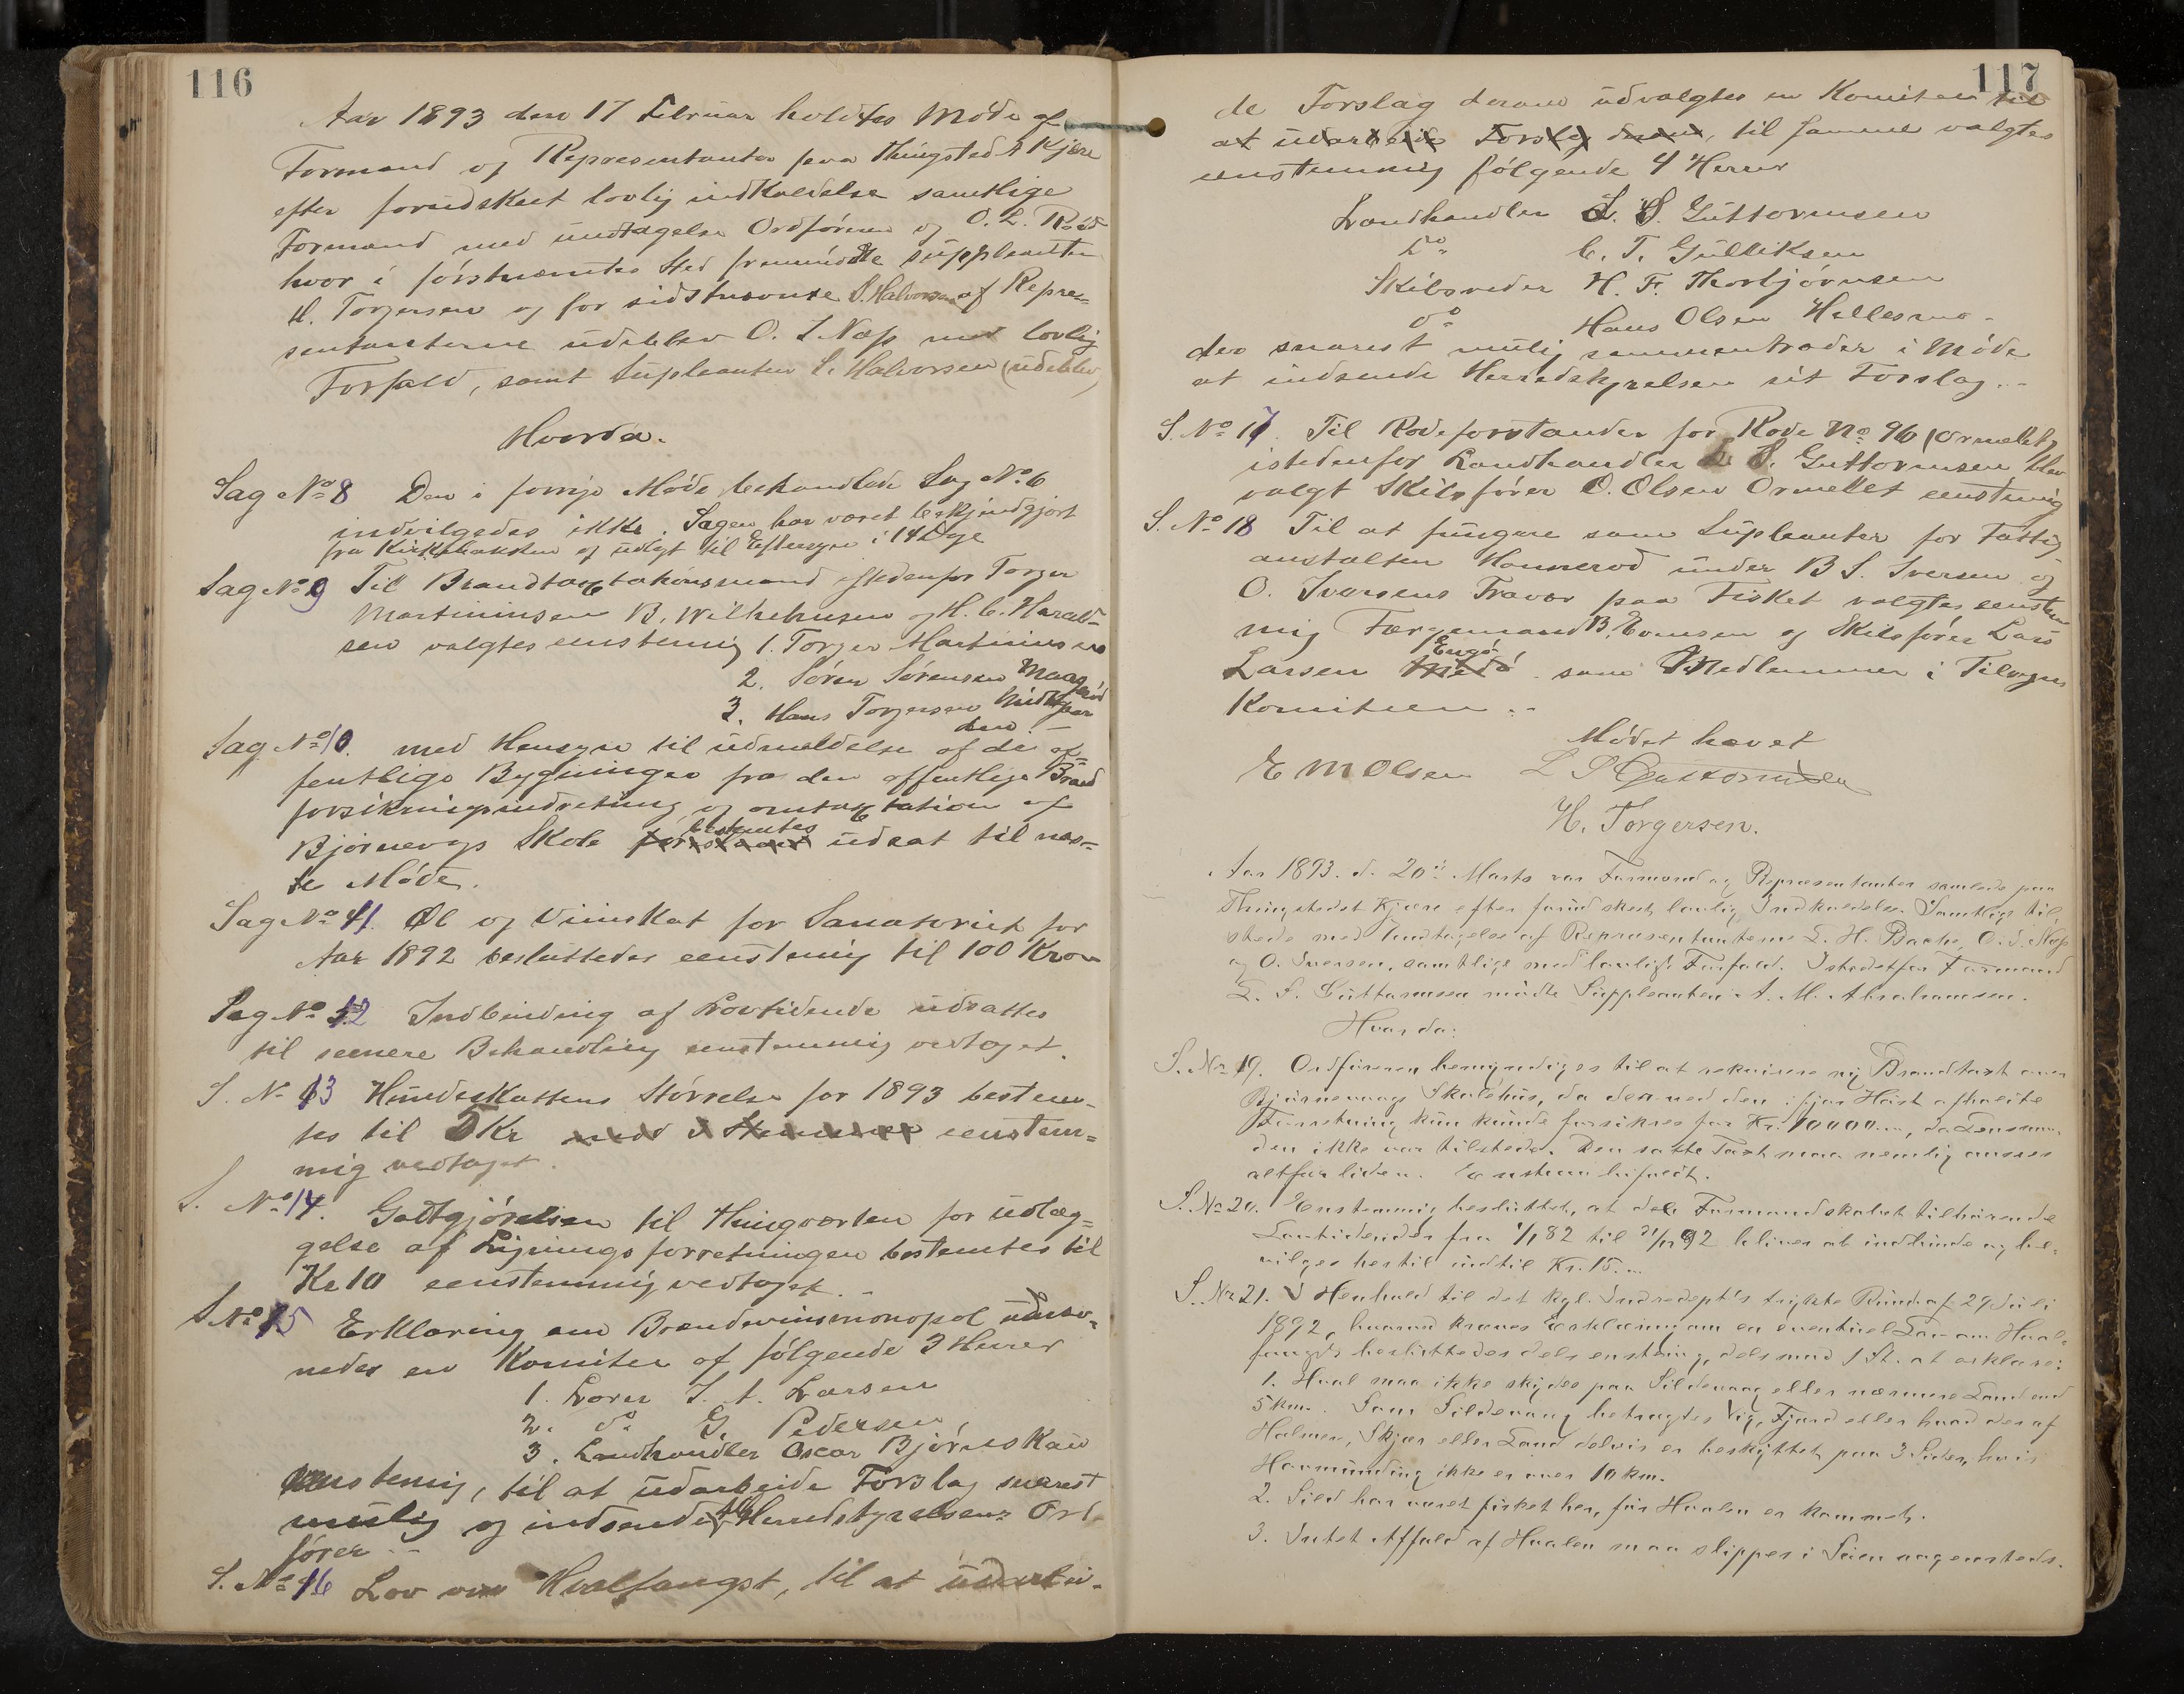 116
Aar 1893 den 17 Februar holdtes Møde af
Formænd og Repræsentanter paa Thingstedet Kjære
efter forudskeet lovlig indkaldelse samtlige
Formænd med undtagelse Ordføreren og O. L. Röd
hvor i förstnævntes Sted fremmödte süppleanten
H. Torgersen og for sidstnævnte S. Halvorsen af Repræ-
sentanterne udeblev O. S. Næss med lovlig
Forfald, samt Supleanten S. Halvorsen (udeblev)
Hvorda.
Sag No 8 Den i forrige Møde behandlede Sag No. 6
indvilgedes ikke. Sagen har været bekjendgjort
fra Kirkebakken og udlagt til Eftersyn i 14 Dage
Sag No 9 Til Brandtaxtationsmænd istedenfor Torger
Martininsen B. Wilhelmsen og H. C. Harald-
sen valgtes eenstemig 1. Torger Martininsen
2. Søren Sørensen Maagerød
3. Hans Torgersen Midtgaar
den. -
Sag No 10. med Hensyn til üdmeldelse af de of-
fentlige Bygninger fra den offentlige Brand
forsikringsindretning og omtaxtation af
Bjørnevogs Skole bestemtes udsat til næs-
te Møde.
Sag No 11. Øl og Vinskat for Sanatoriet for
Aar 1892 besluttedes eenstemig til 100 Kroner
Sag No 12 Indbinding af Lovtidende udsattes
til senere Behandling eenstemmig vedtaget.
S. No 13 Hundeskattens Størrelse for 1893 bestem-
tes til 5 Kr med Stemmer eenstem-
mig vedtaget.
S. No 14. Godtgjørelsen til Thingværten for Udlæg-
gelse af Ligningsforretningen bestemtes til
Kr 10 eenstemmig vedtaget. -
S No 15 Erklæring om Brændevinsmonopol üdnæv-
nedes en Komitee af følgende 3 Herrer
1. Lærer J. A. Larsen
2. do G. Pedersen
3. Landhandler Oscar Bjørnskau
eenstemig, til at udarbeide Forslag snarest
mulig og indsende til Herredstyrelsens Ord-
fører -
S. No 16 Lov om Hvalfangst, til at udarbei-
117
de Forslag derom udvalgtes en Komitee til
at udarbeide Forslag derom, til samme valgtes
eenstemmig følgende 4 Herrer
Landhandler L. S. Guttormsen
Do C. T. Gulliksen
Skibsreder H. F. Thorbjørnsen
do Hans Olsen Hellesmo -
der snarest mulig sammentræder i Møde
at indsende Herredstyrelsen sit Forslag. -
S. No 17. Til Rodeforstander for Rode No 96 (Ormelet)
istedenfor Landhandler L. S. Guttormsen blev
valgt Skibsfører O. Olsen Ormelet eenstemig
S. No 18 Til at fungere som Supleanter for Fattig
anstalten Honnerød under B S. Iversen og
O. Iversens Fravær paa Fisket valgtes eenstem
mig Færgemand B. Evensen og Skibsfører Lars
Larsen Engø som Medlemmer i Tilsyns
Komiteen. -
Mødet hævet
E M Olsen L S Guttormsen
H. Torgersen.
Aar 1893. d. 20de Marts var Formænd og Repræsentanter samlede paa
Thingstedet Kjære efter forud skeet lovlig Indkaldelse. Samtlige til-
stede med Undtagelse af Repræsentanterne L. H. Bache, O. S. Næss
og O. Iversen, samtlige med lovligt Forfald. Istedetfor Formand
L. S. Guttormsen mødte Suppleanten A. M. Abrahamsen.
Hvor da:
S. No 19. Ordføreren bemyndiges til at rekvirere ny Brandtaxt over
Bjørnevaags Skolehus, da den ved den ifjor Høst afholdte
Forretning kun kunde forsikres for Kr. 10000.00, da Lensman-
den ikke var tilstede. Den satte Taxt maa nemlig ansees
altfor liden. Enstem. bifaldt.
S. No 20. Enstemmig besluttet, at de Formandskabet tilhørende
Lovtidender fra 1/1 82 til 31/12 92 bliver at indbinde og be-
vilges hertil indtil Kr. 15.00
S. No 21. I Henhold til det kgl. Indredept's trykte Rund. af 29 Juli
1892, hvorved kræves Erklæring om en eventuel Lov om Hval-
fangst besluttedes dels enstemig, dels mod 1 St. at erklære:
1. Hval maa ikke skydes paa Sildevaag eller nærmere Land end
5 km. Som Sildevaag betragtes Vig, Fjord eller hvad der af
Holmer, Skjær eller Land delvis er beskyttet paa 3 Sider, hvis
Havmunding ikke er over 10 km.
2. Sild har været fisket her, før Hvalen er kommet.
3. Intet Affald af Hvalen maa slippes i Søen nogensteds.